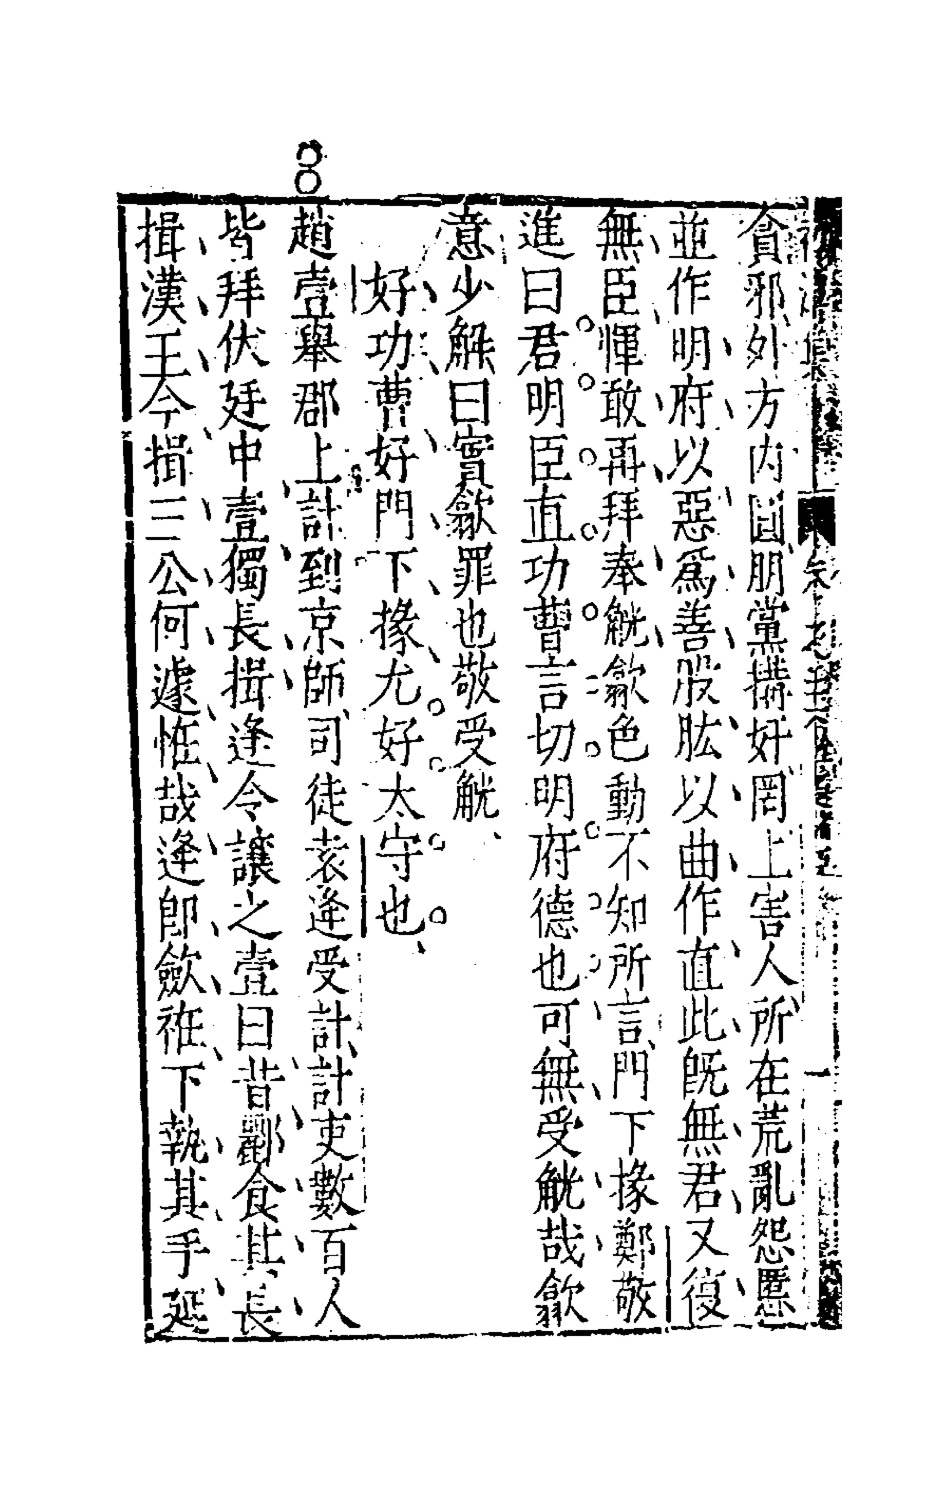 貪邪外方內圓朋黨搆奸罔上害人所在荒亂怨慝
並作明府以惡爲善股肱以曲作直此旣無君又復
無臣惲敢再拜奉觥歙色動不知所言門下掾鄭敬
進曰君明臣直功曹言切明府德也可無受觥哉歙
意少解曰實歙罪也敬受觥
好功曹好門下掾尤好太守也
趙壹舉郡上計到京師司徒袁逢受計計吏數百人
皆拜伏廷中壹獨長揖逢令讓之壹曰昔酈食其長
揖漢王今揖三公何遽恠哉逢卽斂袵下執其手延